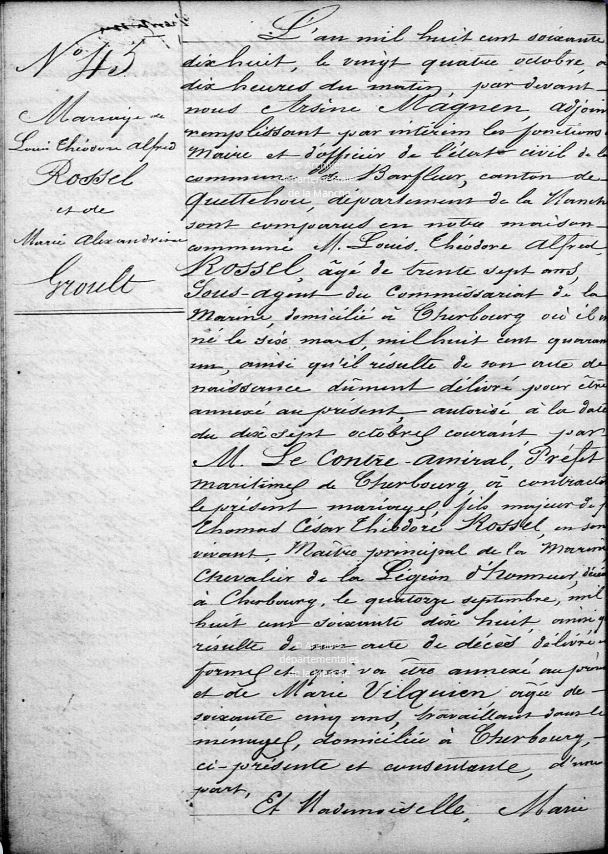 No 43
Mariage de
Louis Théodore Alfred
Rossel
et de
Marie Alexandrine
Groult
L'an mil huit cent soixante
dix huit, le vingt quatre octobre, à
dix heures du matin, par devant
nous Arsène Magnen, adjoin
remplissant par intérim les fonctions
Maire et d'officier de l'état civil de la
commune de Barfleur, canton de
Quettehou, département de la Manch
sont comparus en notre maison
commune M. Louis, Théodore Alfred,
Rossel, âgé de trente sept ans,
Sous-agent du Commissariat de la
Marine, domicilié à Cherbourg où il
né le six mars, mil huit cent quaran
un, ainsi qu'il résulte de son acte de
naissance dûment délivré pour être
annexé au présent, autorisé à la date
du dix sept octobre courant par
M. Le Contre-amiral, Préfet
maritime de Cherbourg, à contracte
le présent mariage, fils majeur de
Thomas César Théodore Rossel, en son
vivant, Maître principal de la Marine
Chevalier de la Légion d'honneur, décé
à Cherbourg, le quatorze septembre, mil
huit cent soixante dix huit, ainsi q
résulte de son acte de décès délivré e
forme et qui va être annexé au prés
et de Marie Vilquien âgée de
soixante cinq ans, travaillant dans le
ménage, domiciliée à Cherbourg,
ci-présente et consentante, d'une
part,
Et Mademoiselle, Marie
départementales
de la Manche
© Archives
départementales
de la Manche